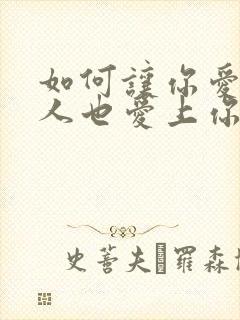 如何讓你愛
人也愛上你
史蒂夫·羅森